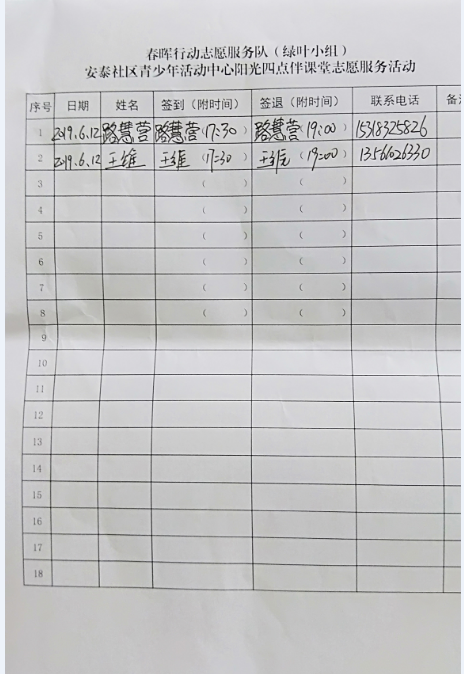 春晖行动志愿服务队（绿叶小组）
安泰社区青少年活动中心阳光四点伴课堂志愿服务活动
序号 日期 姓名 签到（附时间） 签退（附时间） 联系电话 备
1 2019.6.12 路慧营 路慧营（17:30） 路慧营（19:00） 15318325826
2 2019.6.12 王维 王维（17:30） 王维（19:00） 13561026330
3 （ ） （ ）
4 （ ） （ ）
5 （ ） （ ）
6 （ ） （ ）
7 （ ） （ ）
8 （ ） （ ）
9
10
11
12
13
14
15
16
17
18